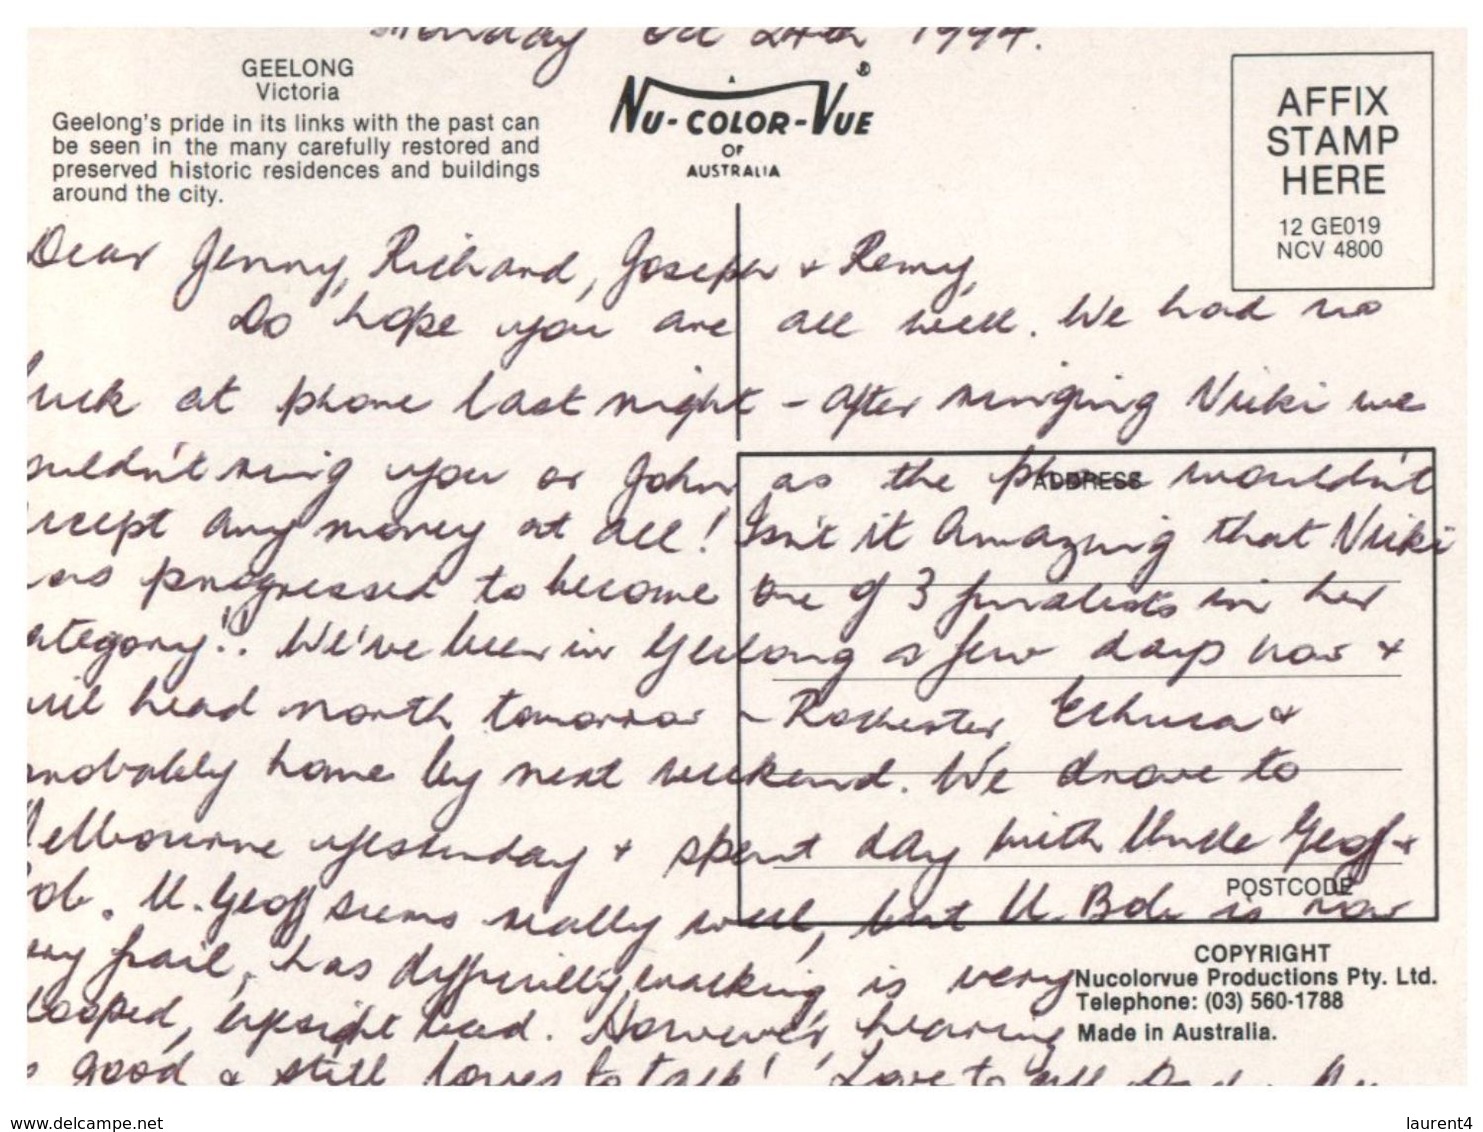 Monday Oct 24th 1994.
GEELONG
Victoria
Geelong's pride in its links with the past can
be seen in the many carefully restored and
preserved historic residences and buildings
around the city.
A
NU-COLOR-VUE®
OF
AUSTRALIA
AFFIX
STAMP
HERE
12 GE019
NCV 4800
Dear Jenny, Richard, Joseph & Remy,
Do hope you are all well. We had no
luck at phone last night - after ringing Nicki we
couldn't ring you or John, as the phone wouldn't
ADDRESS
accept any money at all! Isn't it amazing that Nicki
has progressed to become one of 3 finalists in her
category!. We've been in Geelong a few days now &
will head north tomorrow - Rochester, Echuca &
probably home by next weekend. We drove to
Melbourne yesterday & spent day with Uncle Geoff &
Bob. U. Geoff seems really well, but U. Bob is now
POSTCODE
very frail, has difficulty walking, is very
stooped, eyesight bad. However, hearing
is good & still loves to talk! Love to all Dad &
COPYRIGHT
Nucolorvue Productions Pty. Ltd.
Telephone: (03) 560-1788
Made in Australia.
www.delcampe.net
laurent4